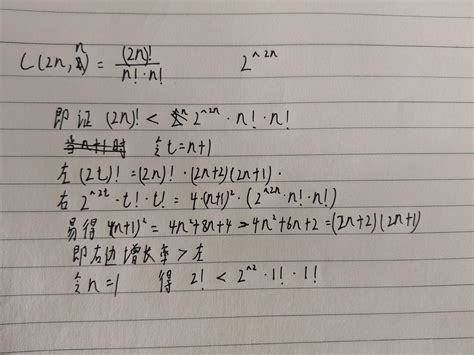 C(2n, n) = (2n)! / n!·n!    2^2n
即证 (2n)! < 2^2n · n! · n!
当n+1时 令t=n+1
左 (2t)! = (2n)! · (2n+2)(2n+1) ·
右 2^2t · t! · t! = 4·(n+1)² · (2^2n · n! · n!)
易得 4(n+1)² = 4n²+8n+4 > 4n²+6n+2 = (2n+2)(2n+1)
即右边增长率 > 左
令n=1 得 2! < 2^2 · 1! · 1!